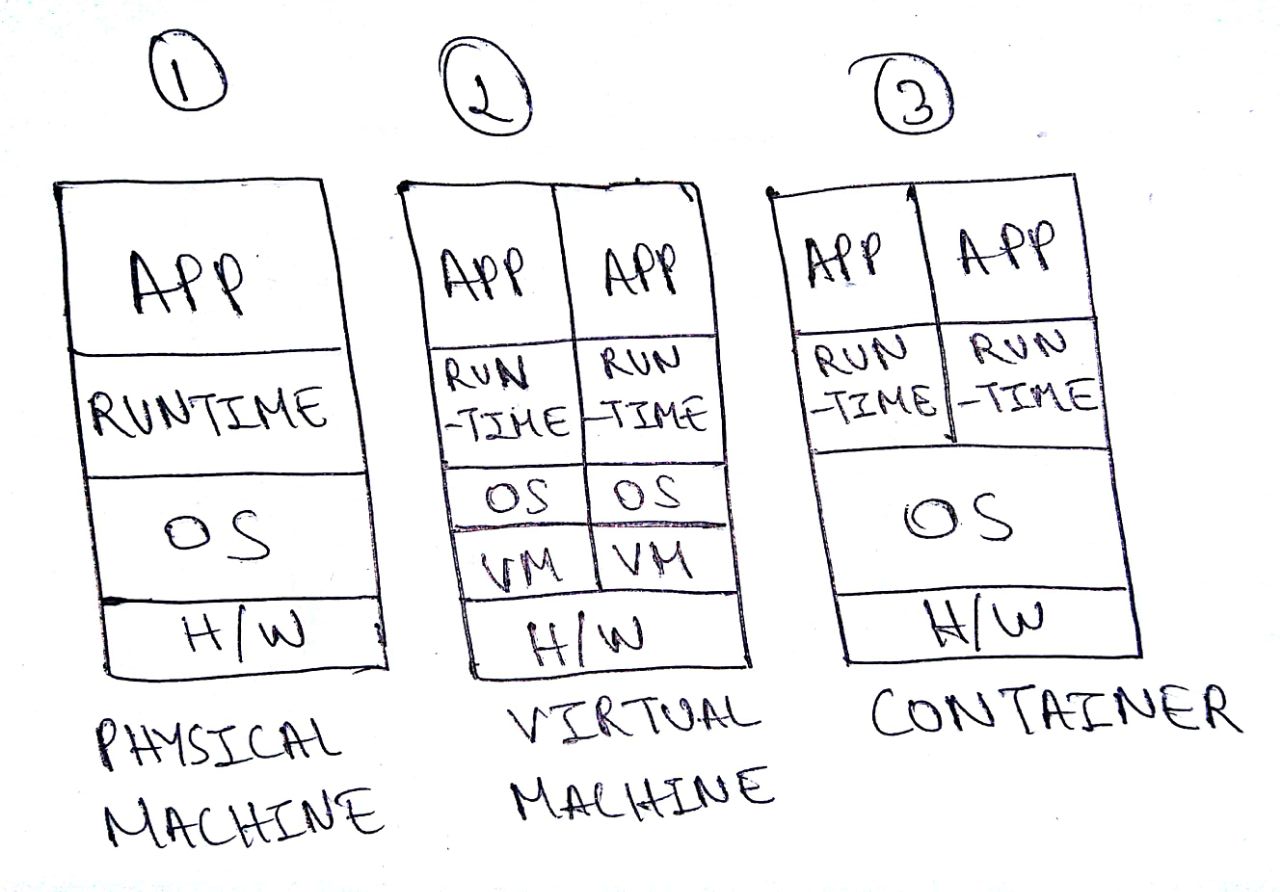 1
2
3
APP
RUNTIME
OS
H/W
PHYSICAL
MACHINE
APP APP
RUN RUN
-TIME -TIME
OS OS
VM VM
H/W
VIRTUAL
MACHINE
APP APP
RUN RUN
-TIME -TIME
OS
H/W
CONTAINER